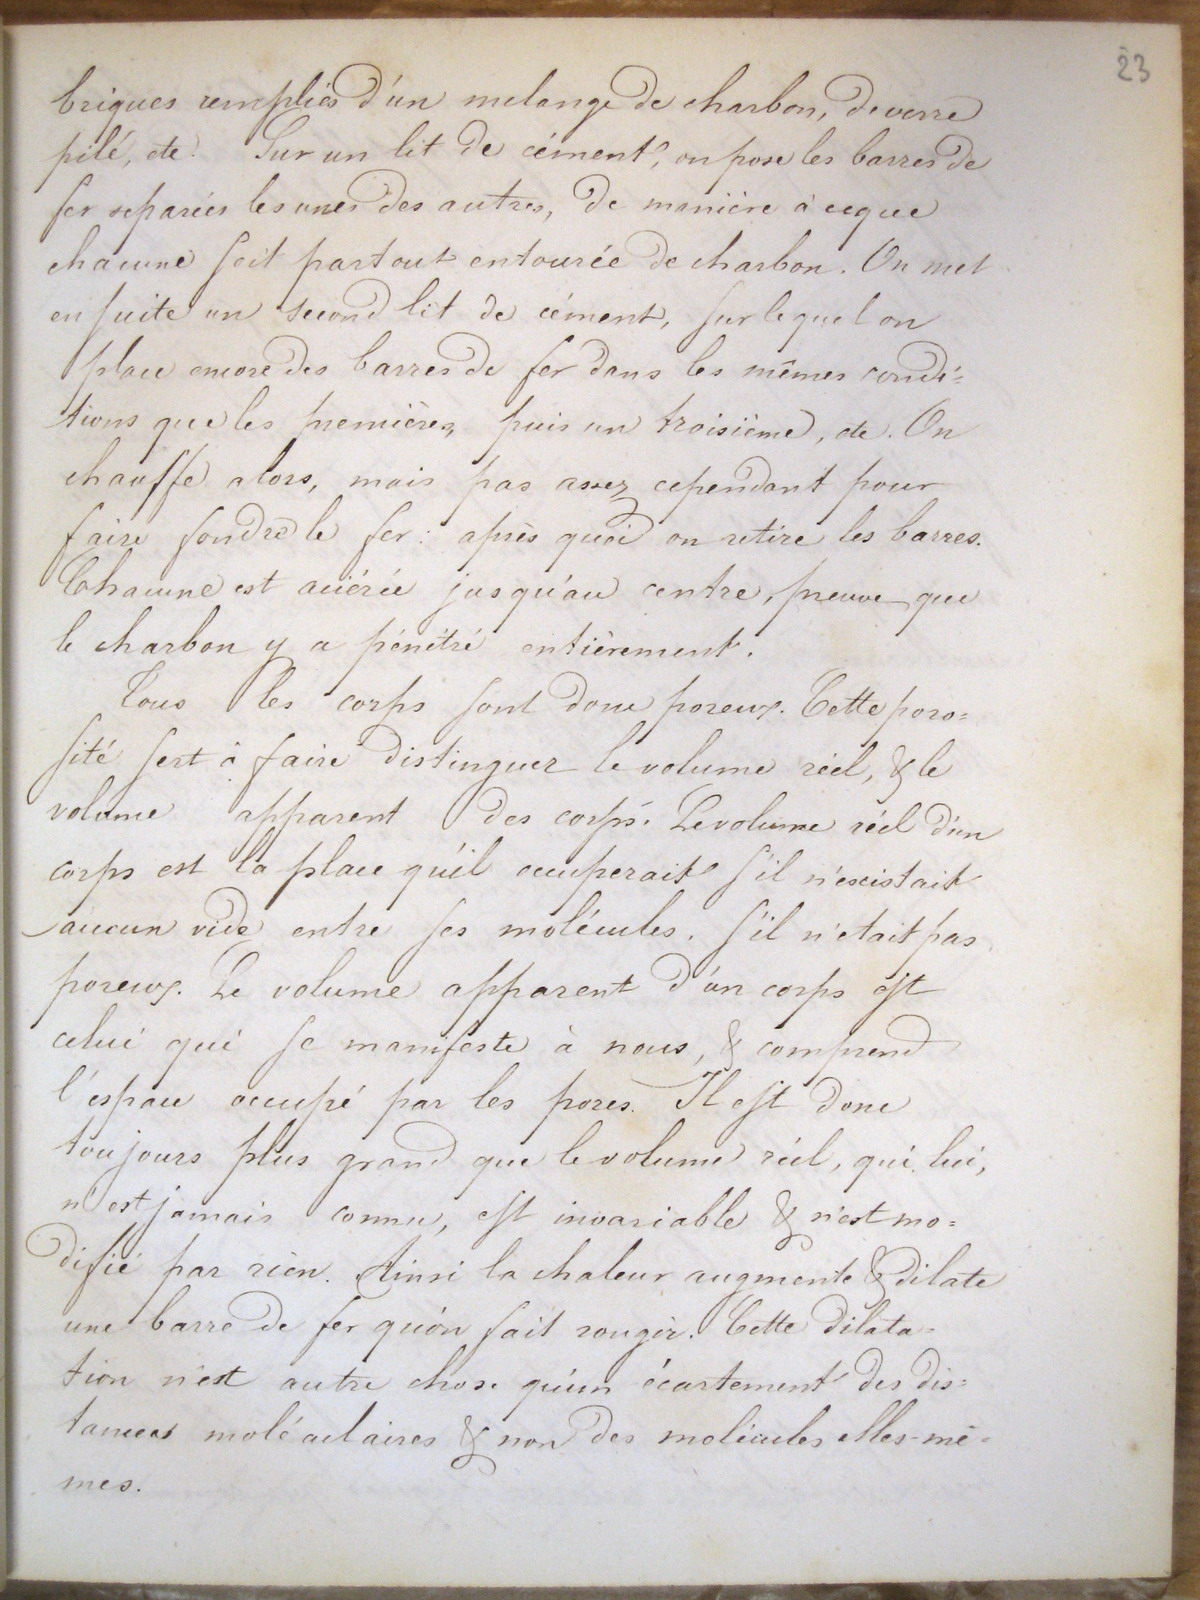 23
briques remplies d'un melange de charbon, de verre
pilé, etc. Sur un lit de cément, on pose les barres de
fer separées les unes des autres, de manière à ce que
chacune soit partout entourée de charbon. On met
ensuite un second lit de cément, sur lequel on
place encore des barres de fer dans les mêmes condi=
tions que les premières, puis un troisième, etc. On
chauffe alors, mais pas assez cependant pour
faire fondre le fer : après quoi on retire les barres.
Chacune est aciérée jusqu'au centre, preuve que
le charbon y a pénétré entièrement.
Tous les corps sont donc poreux. Cette poro=
sité sert à faire distinguer le volume réel, & le
volume apparent des corps. Le volume réel d'un
corps est la place qu'il occuperait s'il n'existait
aucun vide entre ses molécules. s'il n'etait pas
poreux. Le volume apparent d'un corps est
celui qui se manifeste à nous, & comprend
l'espace occupé par les pores. Il est donc
toujours plus grand que le volume réel, qui, lui,
n'est jamais connu, est invariable & n'est mo=
difié par rien. Ainsi la chaleur augmente & dilate
une barre de fer qu'on fait rougir. Cette dilata=
tion n'est autre chose qu'un écartement des dis=
tances moléculaires & non des molécules elles-mê=
mes.